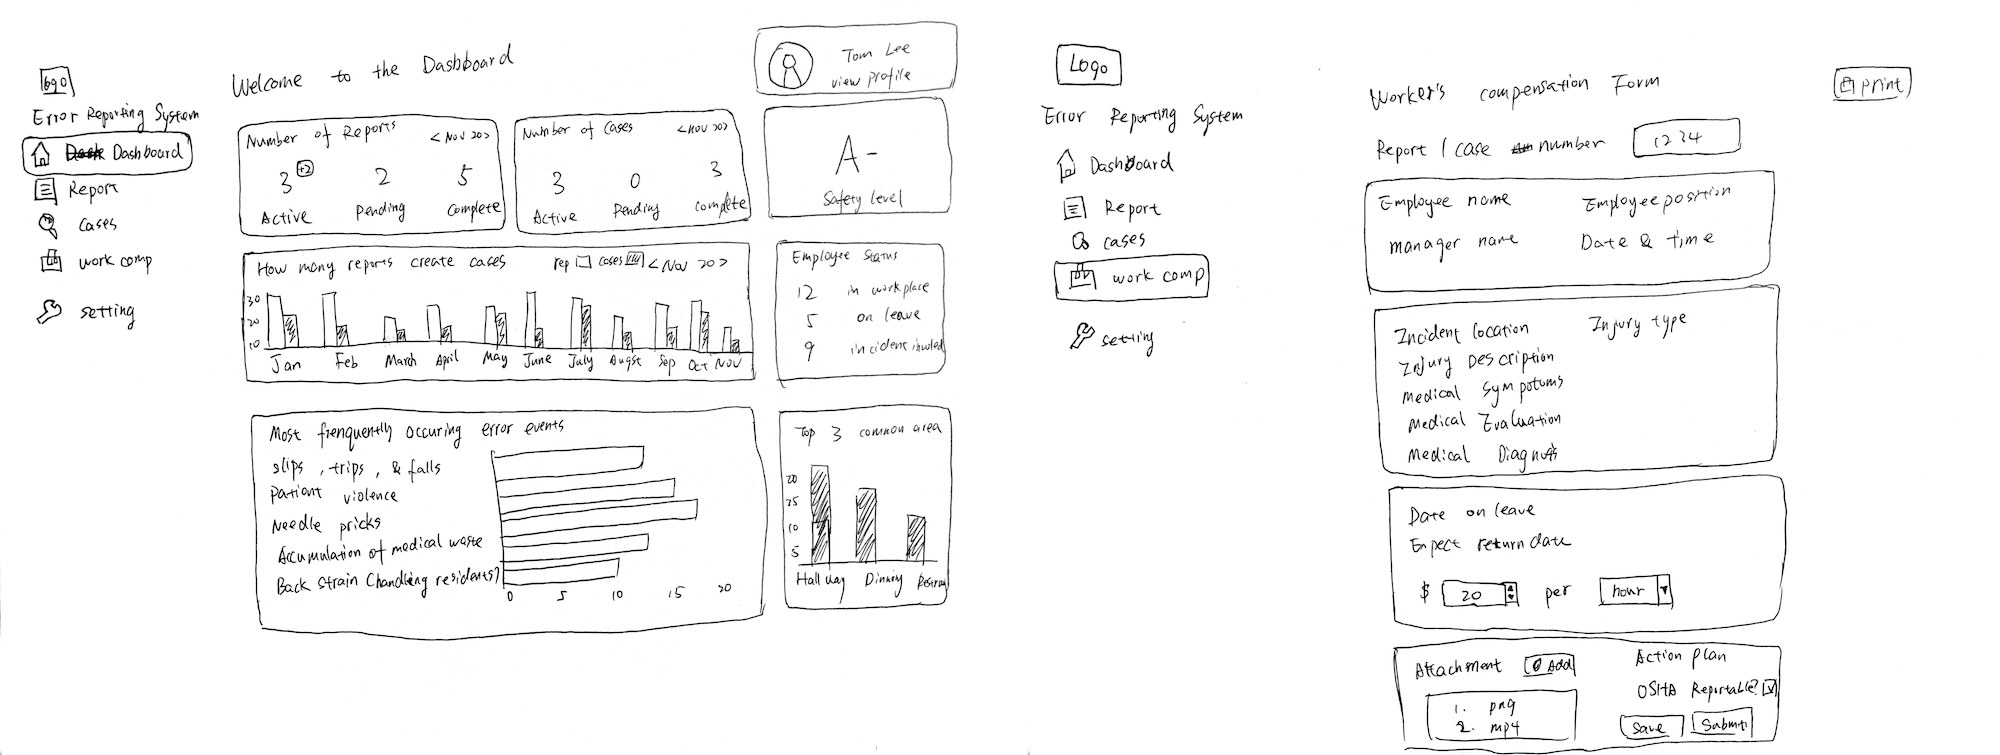 Logo
Error Reporting System
Dashboard
Report
Cases
work comp
setting
Welcome to the Dashboard
Tom Lee
view profile
Number of Reports < Nov 20 >
3 +2 2 5
Active Pending Complete
Number of Cases < Nov 20 >
3 0 3
Active Pending complete
A-
Safety level
How many reports create cases rep cases < Nov 20 >
30
20
10
Jan Feb March April May June July Augst Sep Oct Nov
Employee Status
12 in workplace
5 on leave
9
Most frenquently occuring error events
slips, trips, & falls
patient violence
Needle pricks
Accumulation of medical waste
Back strain Chandling residents?
0 5 10 15 20
Top 3 common area
20
25
10
5
Hallway
Logo
Error Reporting System
Dashboard
Report
cases
work comp
setting
Worker's compensation Form
print
Report / case number 1234
Employee name Employee position
manager name Date & time
Incident location Injury type
Injury Description
Medical Sympotoms
Medical Evaluation
Medical Diagnosis
Date on leave
Expect return date
$ 20 per hour
Attachment Add
1. png
2. mp4
Action plan
OSHA Reportable?
Save Submit